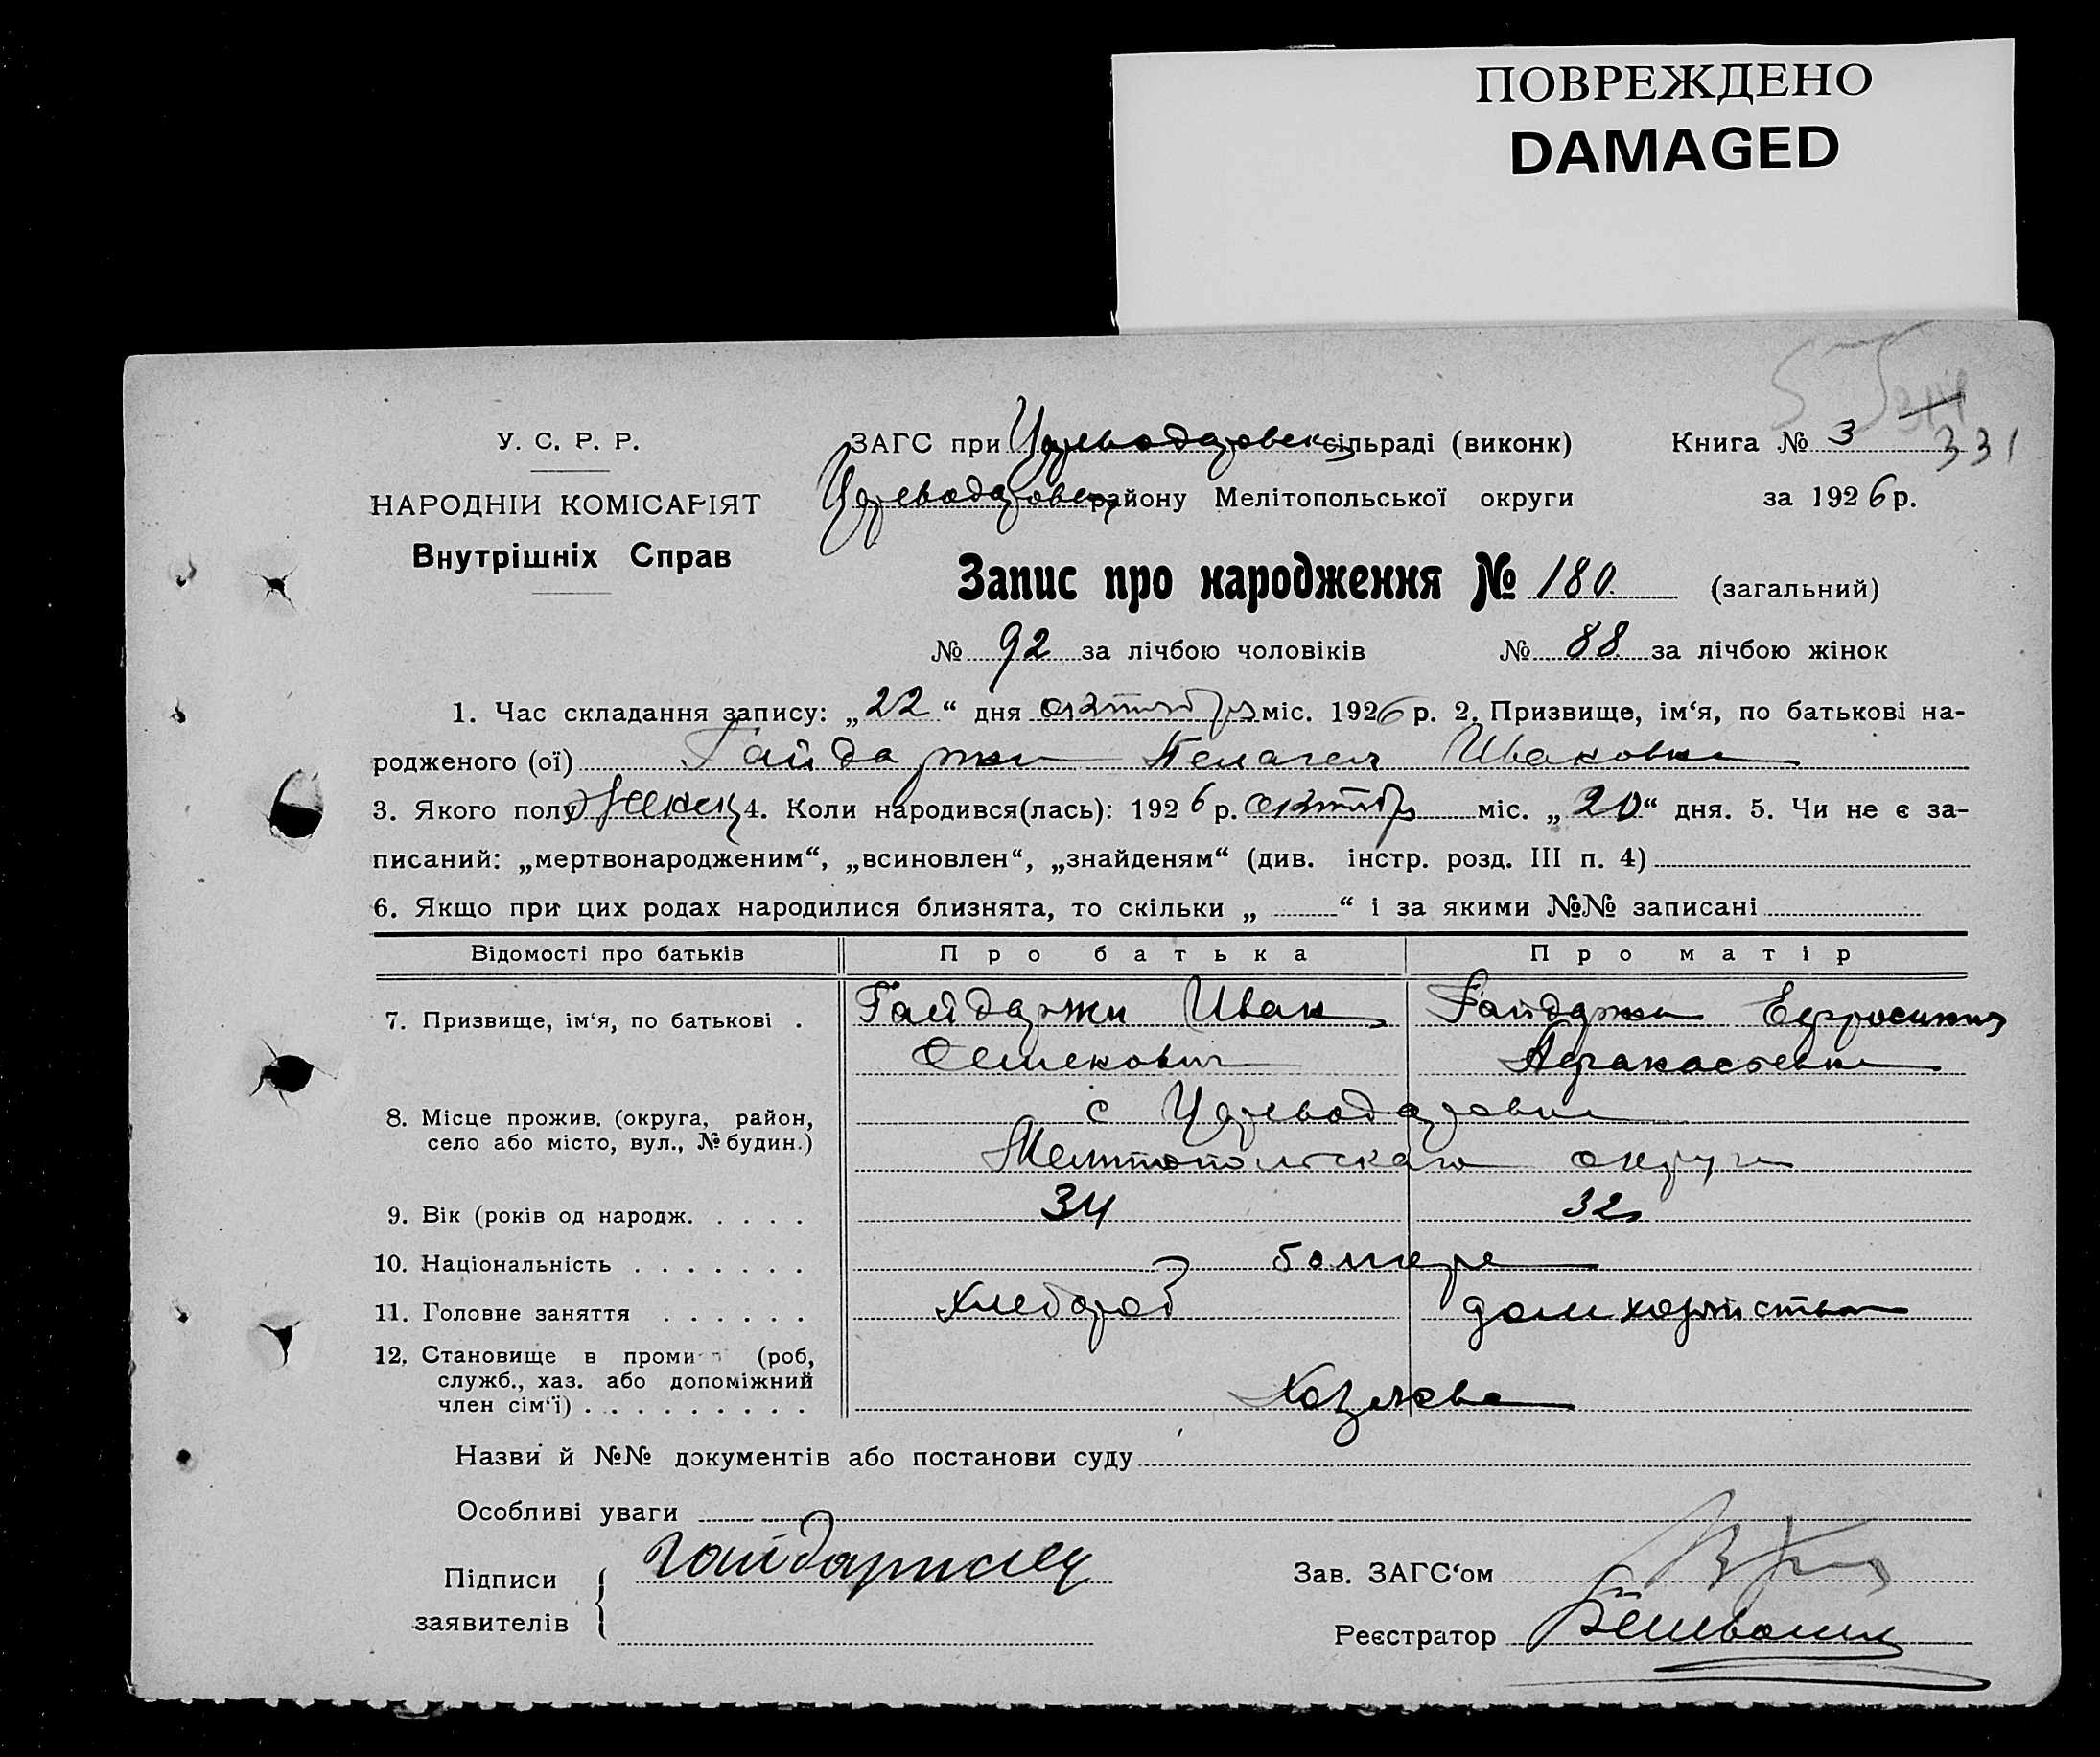 ПОВРЕЖДЕНО
DAMAGED
У. С. Р. Р.
НАРОДНІЙ КОМІСАРІЯТ
Внутрішніх Справ
ЗАГС при Цареводаровск сільраді (виконк)
Книга № 3
331
Цареводаровск району Мелітопольської округи
за 1926 р.
Запис про народження № 180. (загальний)
№ 92 за лічбою чоловіків № 88 за лічбою жінок
1. Час складання запису: „22“ дня октября міс. 1926 р. 2. Призвище, ім‘я, по батькові на-
родженого (ої) Гайдаржи Пелагея Ивановна
3. Якого полу женск 4. Коли народився(лась): 1926 р. октябр міс. „20“ дня. 5. Чи не є за-
писаний: „мертвонародженим“, „всиновлен“, „знайденям“ (див. інстр. розд. III п. 4)
6. Якщо при цих родах народилися близнята, то скільки „ “ і за якими №№ записані
Відомості про батьків Про батька Про матір
7. Призвище, ім‘я, по батькові . Гайдаржи Иван Гайдаржи Ефросиния
Семенович Афанасьевна
8. Місце прожив. (округа, район, с Цареводаровка
село або місто, вул., № будин.) Мелитопольскаго округа
9. Вік (років од народж. . . . . 34 32
10. Національність . . . . . . . болгаре
11. Головне заняття . . . . . . хлебороб домхозяйство
12. Становище в проми (роб,
служб., хаз. або допоміжний
член сім‘ї) . . . . . . . . . хозяева
Назви й №№ документів або постанови суду
Особливі уваги
Підписи
заявителів
Зав. ЗАГС‘ом
Реєстратор